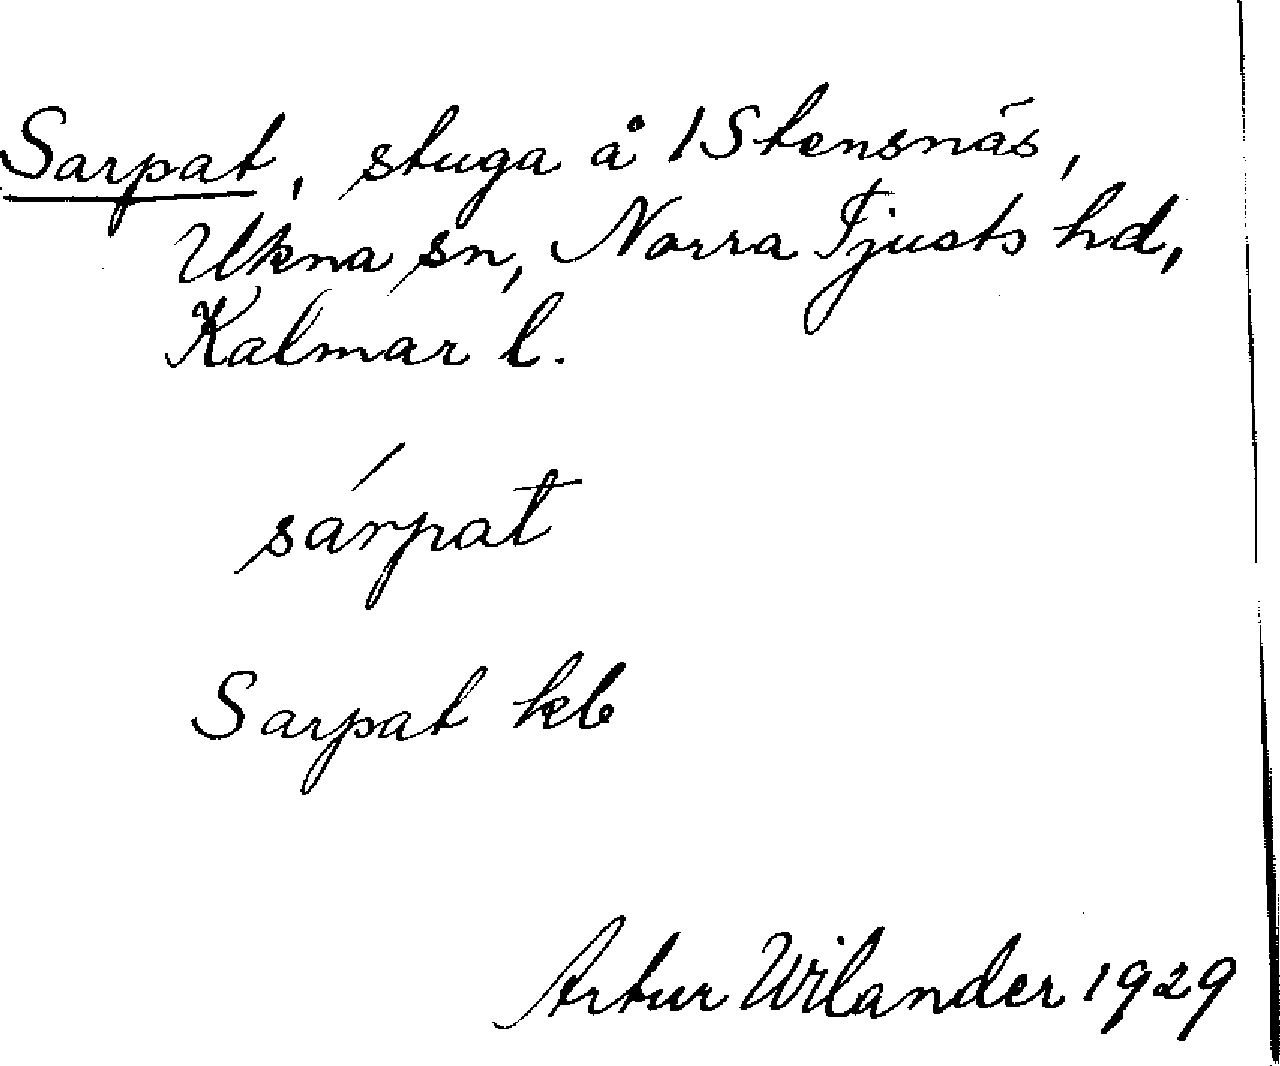 Sarpat, stuga å 1 Stensnäs,
Ukna sn, Norra Tjusts hd,
Kalmar l.
sárpat
Sarpat kb
Artur Wilander 1929